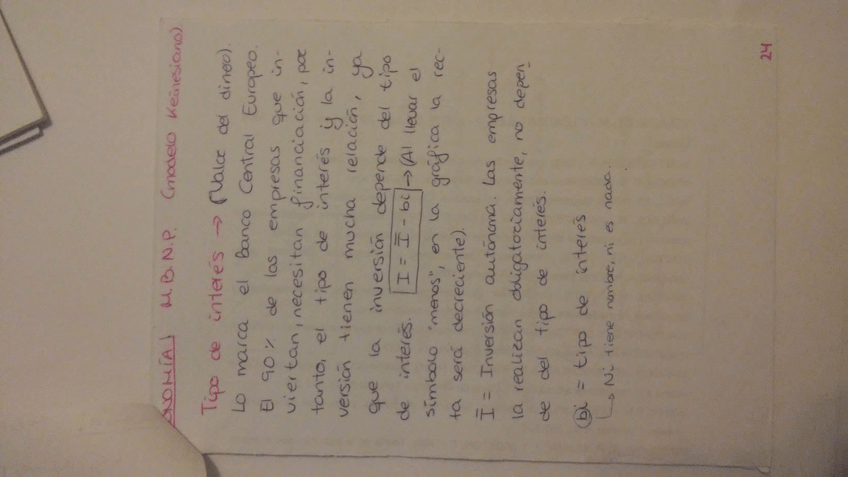 ONOMÍA] M.B.N.P. (modelo Keinesiano)
Tipo de interés → (Valor del dinero).
Lo marca el Banco Central Europeo.
El 90% de las empresas que in-
viertan, necesitan financiación, por
tanto, el tipo de interés y la in-
versión tienen mucha relación, ya
que la inversión depende del tipo
de interés. I = Ī - bi → (Al llevar el
símbolo "menos", en la gráfica la rec-
ta será decreciente).
Ī = Inversión autónoma. Las empresas
la realizan obligatoriamente, no depen-
de del tipo de interés.
bi = tipo de interés
↳ Ni tiene nombre, ni es nada.
24